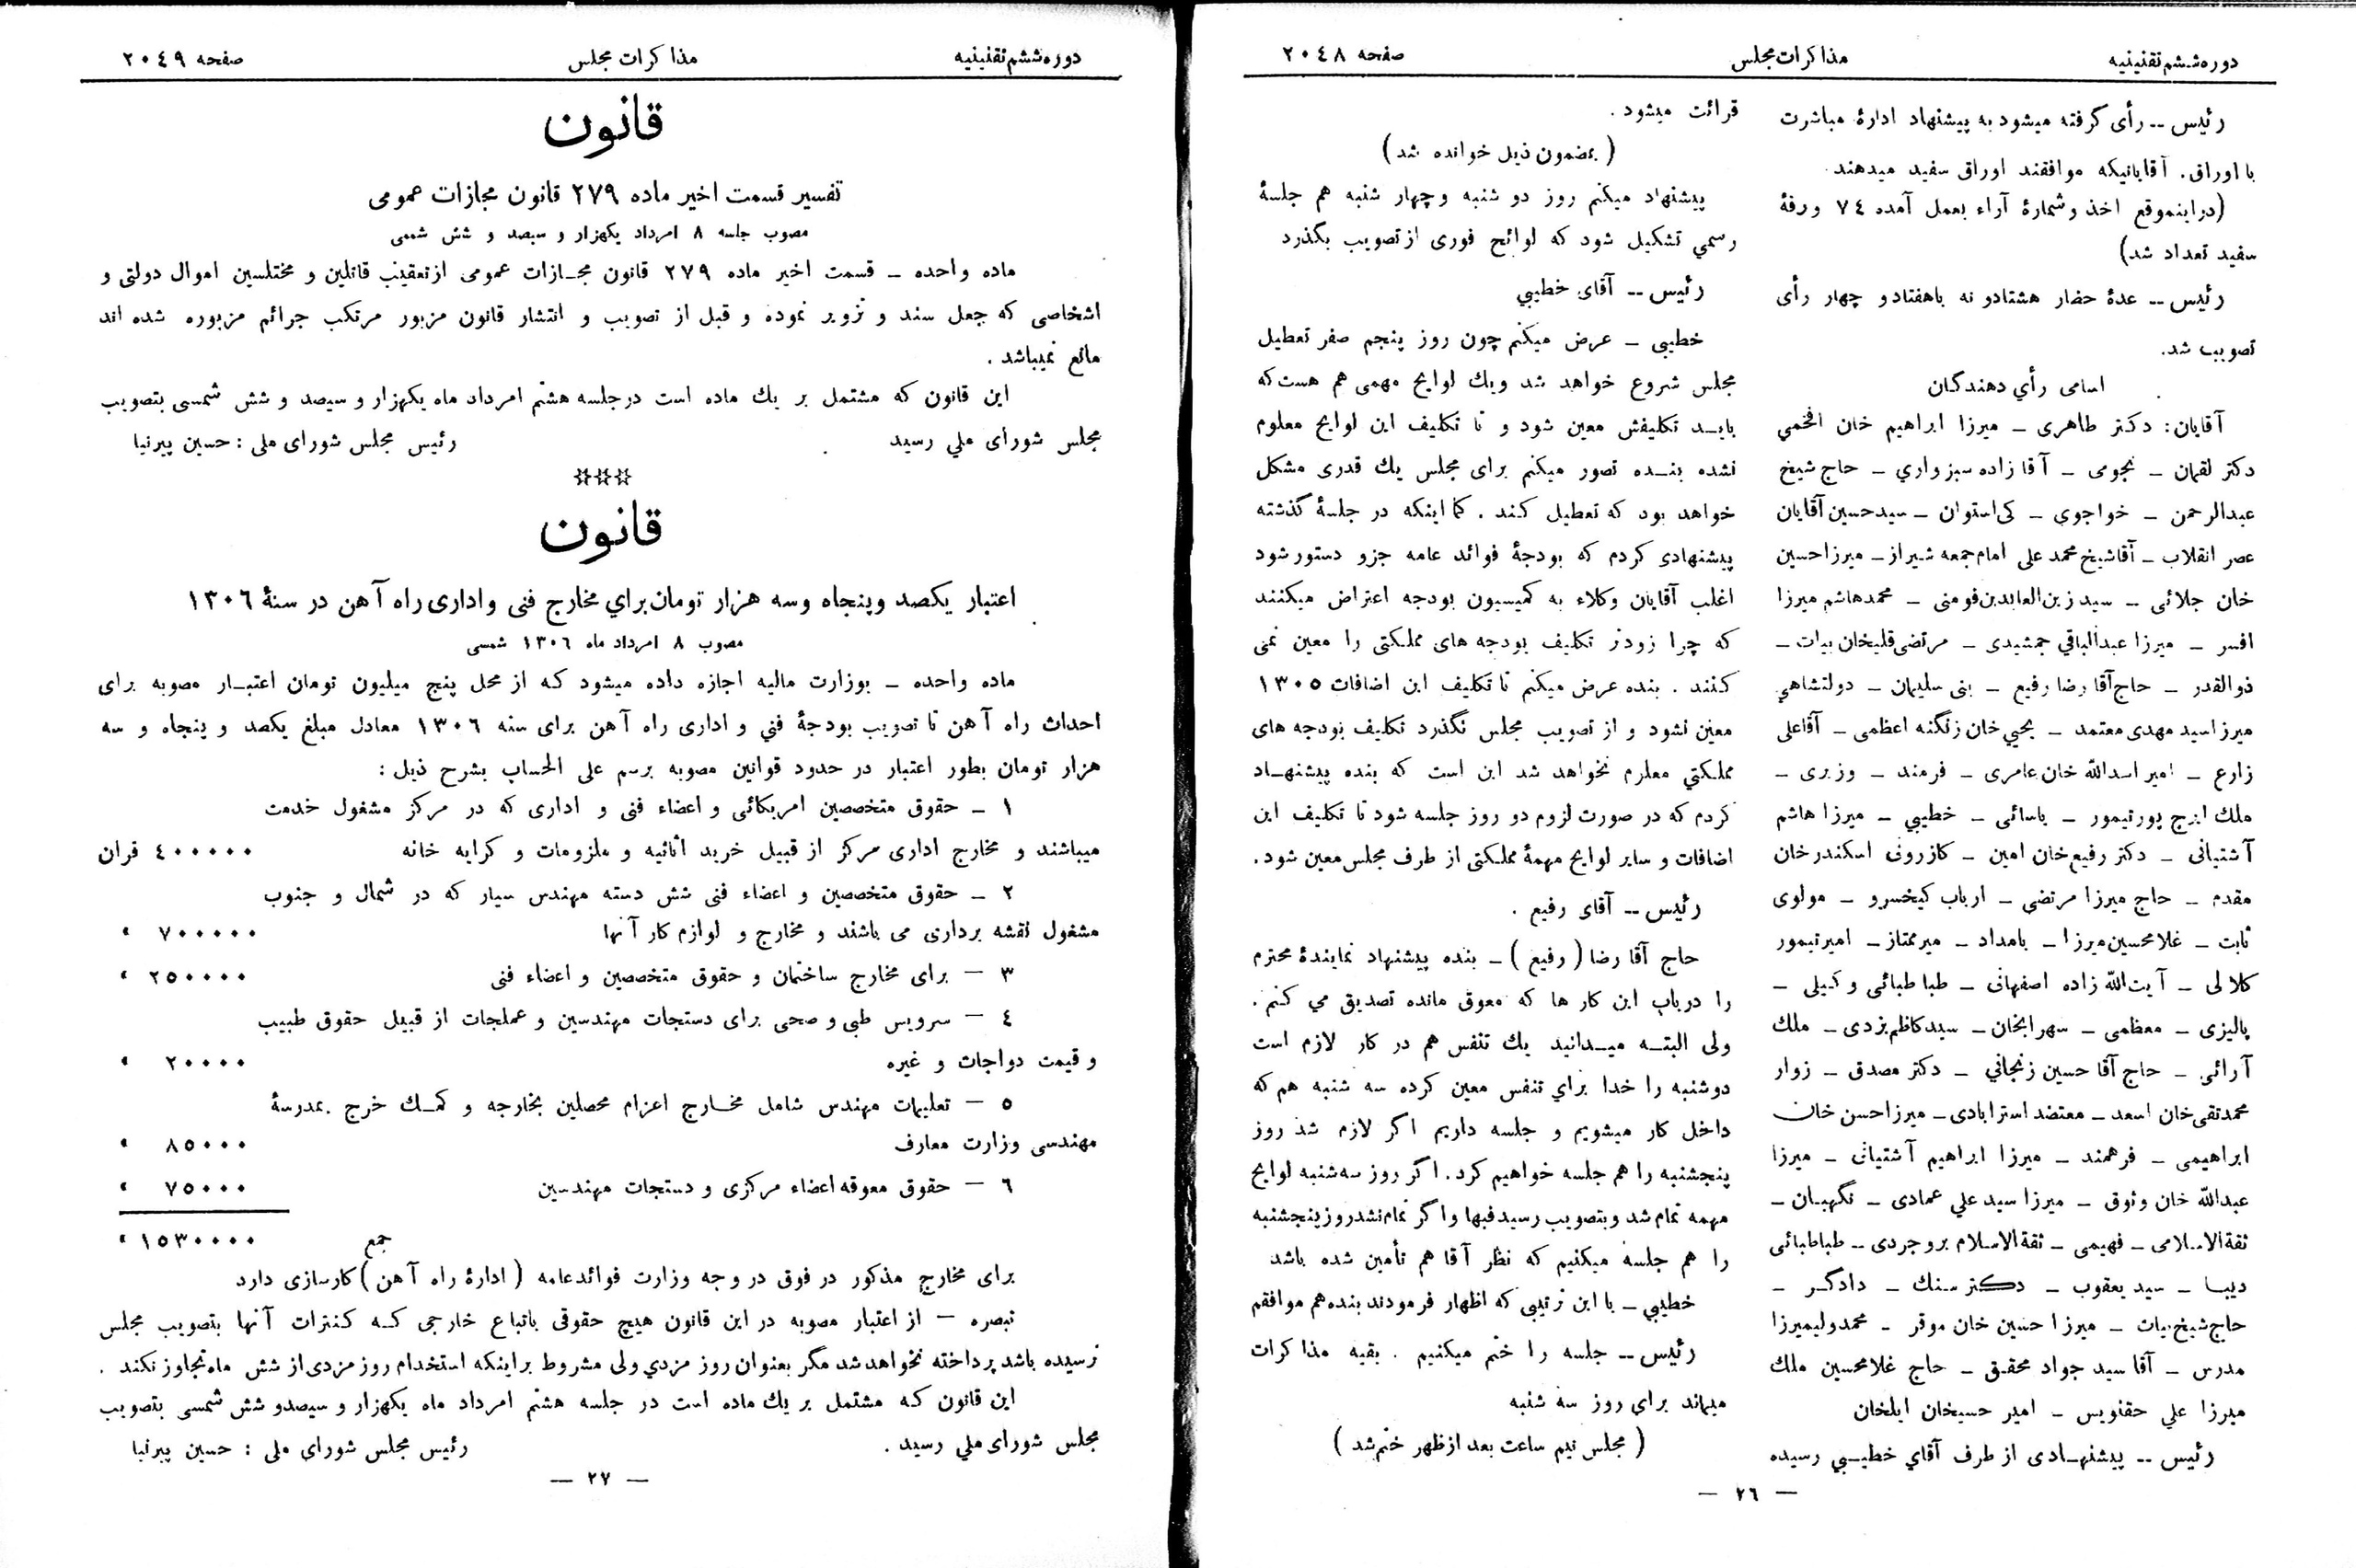 دوره ششم تقنینیه
مذاکرات مجلس
صفحه ۲۰٤۸
رئیس -- رأی گرفته میشود به پیشنهاد ادارۀ مباشرت
با اوراق. آقایانیکه موافقند اوراق سفید میدهند
(در اینموقع اخذ و شمارۀ آراء بعمل آمده ۷٤ ورقۀ
سفید تعداد شد)
رئیس -- عدۀ حضار هشتاد و نه باهفتاد و چهار رأی
تصویب شد.
اسامی رأي دهندگان
آقایان: دکتر طاهری - میرزا ابراهیم خان افخمي
دکتر لقمان - نجومی - آقا زاده سبزواري - حاج شیخ
عبدالرحمن - خواجوی - کی استوان - سید حسین آقایان
عصر انقلاب - آقاشیخ محمد علی امام جمعه شیراز - میرزا حسین
خان جلائی - سید زین العابدین فومنی - محمد هاشم میرزا
افسر - میرزا عبدالباقي جمشیدی - مرتضی قلیخان بیات -
ذوالقدر - حاج آقا رضا رفیع - بنی سلیمان - دولتشاهي
میرزا سید مهدی معتمد - یحیي خان زنگنه اعظمی - آقاعلی
زارع - امیر اسدالله خان عامری - فرمند - وزیری -
ملك ایرج پورتیمور - یاسائی - خطیبي - میرزا هاشم
آشتیانی - دکتر رفیع خان امین - کازرونی اسکندر خان
مقدم - حاج میرزا مرتضي - ارباب کیخسرو - مولوی
ثابت - غلامحسین میرزا - بامداد - میر ممتاز - امیر تیمور
کلالی - آیت الله زاده اصفهانی - طباطبائی وکیلی -
پالیزی - معظمی - سهرابخان - سید کاظم یزدی - ملك
آرائی - حاج آقا حسین زنجاني - دکتر مصدق - زوار
محمد تقی خان اسعد - معتضد استرابادی - میرزا حسن خان
ابراهیمی - فرهمند - میرزا ابراهیم آشتیانی - میرزا
عبدالله خان وثوق - میرزا سید علي عمادی - نگهبان -
ثقة الاسلامی - فهیمی - ثقة الاسلام بروجردی - طباطبائی
دیبا - سید یعقوب - دکتر سنك - دادگر -
حاج شیخ بیات - میرزا حسین خان موقر - محمد ولیمیرزا
مدرس - آقا سید جواد محقق - حاج غلامحسین ملك
میرزا علي حقنویس - امیر حسیخان ایلخان
رئیس -- پیشنهادی از طرف آقاي خطیبي رسیده
قرائت میشود .
( بمضمون ذیل خوانده شد )
پیشنهاد میکنم روز دو شنبه و چهار شنبه هم جلسۀ
رسمي تشکیل شود که لوائح فوری از تصویب بگذرد
رئیس -- آقای خطیبي
خطیبی - عرض میکنم چون روز پنجم صفر تعطیل
مجلس شروع خواهد شد ویك لوایح مهمی هم هست که
باید تکلیفش معین شود و تا تکلیف این لوایح معلوم
نشده بنده تصور میکنم برای مجلس یك قدری مشکل
خواهد بود که تعطیل کند . کما اینکه در جلسۀ گذشته
پیشنهادی کردم که بودجۀ فوائد عامه جزو دستور شود
اغلب آقایان وکلاء به کمیسیون بودجه اعتراض میکنند
که چرا زودتر تکلیف بودجه های مملکتی را معین نمی
کنند . بنده عرض میکنم تا تکلیف این اضافات ۱۳۰۵
معین نشود و از تصویب مجلس نگذرد تکلیف بودجه های
مملکتي معلوم نخواهد شد این است که بنده پیشنهاد
کردم که در صورت لزوم دو روز جلسه شود تا تکلیف این
اضافات و سایر لوایح مهمۀ مملکتی از طرف مجلس معین شود.
رئیس -- آقای رفیع .
حاج آقا رضا ( رفیع ) - بنده پیشنهاد نمایندۀ محترم
را در باب این کار ها که معوق مانده تصدیق مي کنم .
ولی البته میدانید یك تنفس هم در کار لازم است
دوشنبه را خدا براي تنفس معین کرده سه شنبه هم که
داخل کار میشویم و جلسه داریم اگر لازم شد روز
پنجشنبه را هم جلسه خواهیم کرد. اگر روز سه شنبه لوایح
مهمه تمام شد و بتصویب رسید فبها و اگر تمام نشد روز پنجشنبه
را هم جلسه میکنیم که نظر آقا هم تأمین شده باشد
خطیبي - با این ترتیبی که اظهار فرمودند بنده هم موافقم
رئیس -- جلسه را ختم میکنیم . بقیه مذاکرات
میماند برای روز سه شنبه
( مجلس نیم ساعت بعد از ظهر ختم شد )
— ۲٦ —
دوره ششم تقنینیه
مذاکرات مجلس
صفحه ۲۰٤۹
قانون
تفسیر قسمت اخیر ماده ۲۷۹ قانون مجازات عمومی
مصوب جلسه ۸ امرداد یکهزار و سیصد و شش شمسی
ماده واحده - قسمت اخیر ماده ۲۷۹ قانون مجازات عمومی از تعقیب قاتلین و مختلسین اموال دولتی و
اشخاصی که جعل سند و تزویر نموده و قبل از تصویب و انتشار قانون مزبور مرتکب جرائم مزبوره شده اند
مانع نمیباشد .
این قانون که مشتمل بر یك ماده است در جلسه هشتم امرداد ماه یکهزار و سیصد و شش شمسی بتصویب
مجلس شورای ملي رسید . رئیس مجلس شورای ملی : حسین پیرنیا
☆☆☆
قانون
اعتبار یکصد و پنجاه و سه هزار تومان براي مخارج فنی و اداری راه آهن در سنۀ ۱۳۰٦
مصوب ۸ امرداد ماه ۱۳۰٦ شمسی
ماده واحده - بوزارت مالیه اجازه داده میشود که از محل پنج میلیون تومان اعتبار مصوبه برای
احداث راه آهن تا تصویب بودجۀ فني و اداری راه آهن برای سنه ۱۳۰٦ معادل مبلغ یکصد و پنجاه و سه
هزار تومان بطور اعتبار در حدود قوانین مصوبه برسم علی الحساب بشرح ذیل :
۱ - حقوق متخصصین امریکائی و اعضاء فنی و اداری که در مرکز مشغول خدمت
میباشند و مخارج اداری مرکز از قبیل خرید اثاثیه و ملزومات و کرایه خانه ٤۰۰۰۰۰ قران
۲ - حقوق متخصصین و اعضاء فنی شش دسته مهندس سیار که در شمال و جنوب
مشغول نقشه برداری می باشند و مخارج و لوازم کار آنها ۷۰۰۰۰۰ «
۳ - برای مخارج ساختمان و حقوق متخصصین و اعضاء فنی ۲۵۰۰۰۰ «
٤ - سرویس طبی و صحی برای دستجات مهندسین و عملجات از قبیل حقوق طبیب
و قیمت دواجات و غیره ۲۰۰۰۰ «
۵ - تعلیمات مهندس شامل مخارج اعزام محصلین بخارجه و کمك خرج بمدرسۀ
مهندسی وزارت معارف ۸۵۰۰۰ «
٦ - حقوق معوقه اعضاء مرکزی و دستجات مهندسین ۷۵۰۰۰ «
جمع ۱۵۳۰۰۰۰ «
برای مخارج مذکور در فوق در وجه وزارت فوائد عامه ( ادارۀ راه آهن ) کارسازی دارد
تبصره - از اعتبار مصوبه در این قانون هیچ حقوقی باتباع خارجی که کنترات آنها بتصویب مجلس
نرسیده باشد پرداخته نخواهد شد مگر بعنوان روز مزدي ولی مشروط بر اینکه استخدام روز مزدی از شش ماه تجاوز نکند .
این قانون که مشتمل بر یك ماده است در جلسه هشتم امرداد ماه یکهزار و سیصد و شش شمسی بتصویب
مجلس شورای ملي رسید . رئیس مجلس شورای ملی : حسین پیرنیا
— ۲۷ —